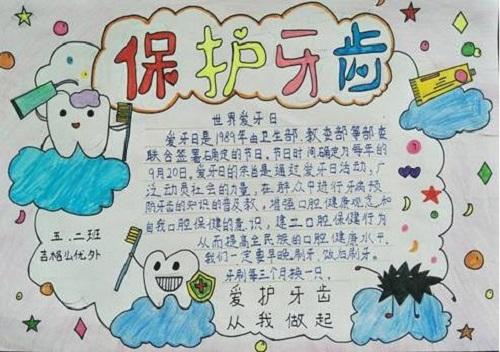 保护牙齿
世界爱牙日
爱牙日是1989年由卫生部、教委部等部委
联合签署确定的节日,节日时间确定为每年的
9月20日。爱牙日的宗旨是通过爱牙日活动,广
泛动员社会的力量,在群众中进行牙病预
防牙齿的知识的普及教,增强口腔健康观念和
自我口腔保健的意识,建立口腔保健行为
从而提高全民族的口腔健康水平。
我们一定要早晚刷牙、饭后刷牙。
牙刷每三个月换一只。
五、二班
爱护牙齿
从我做起